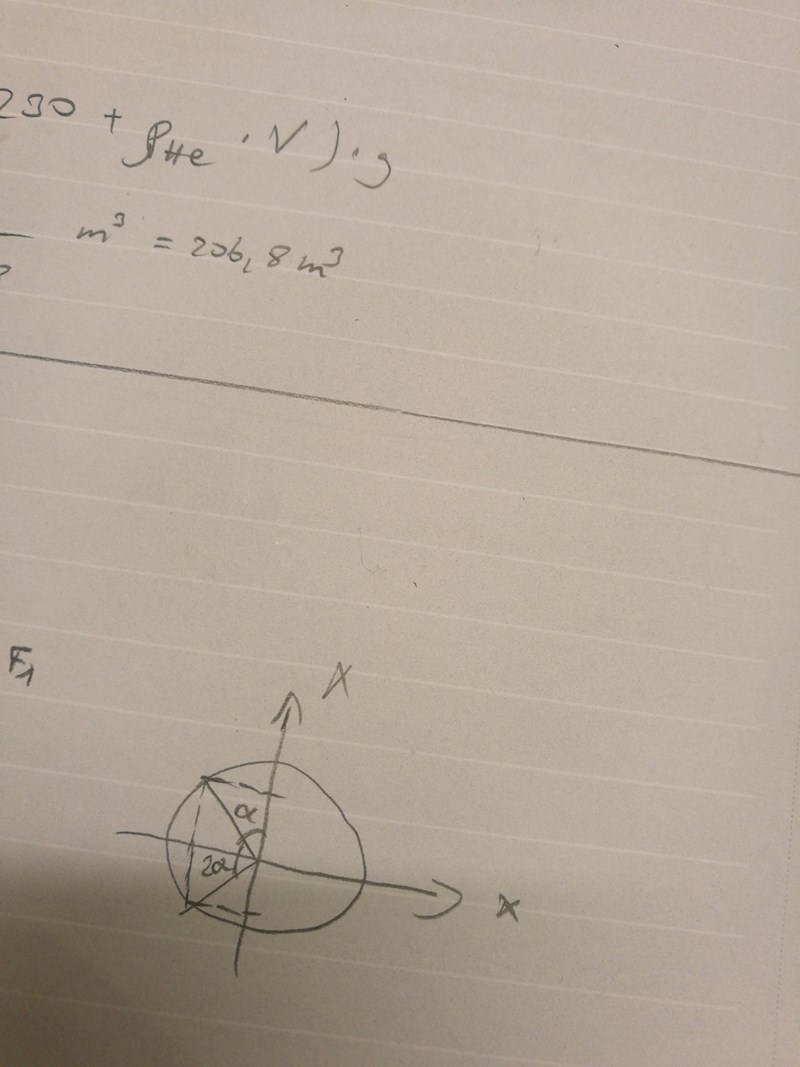 230 + ρHe · V) · g
m³ = 206,8 m³
F₁
X
α
2α
x